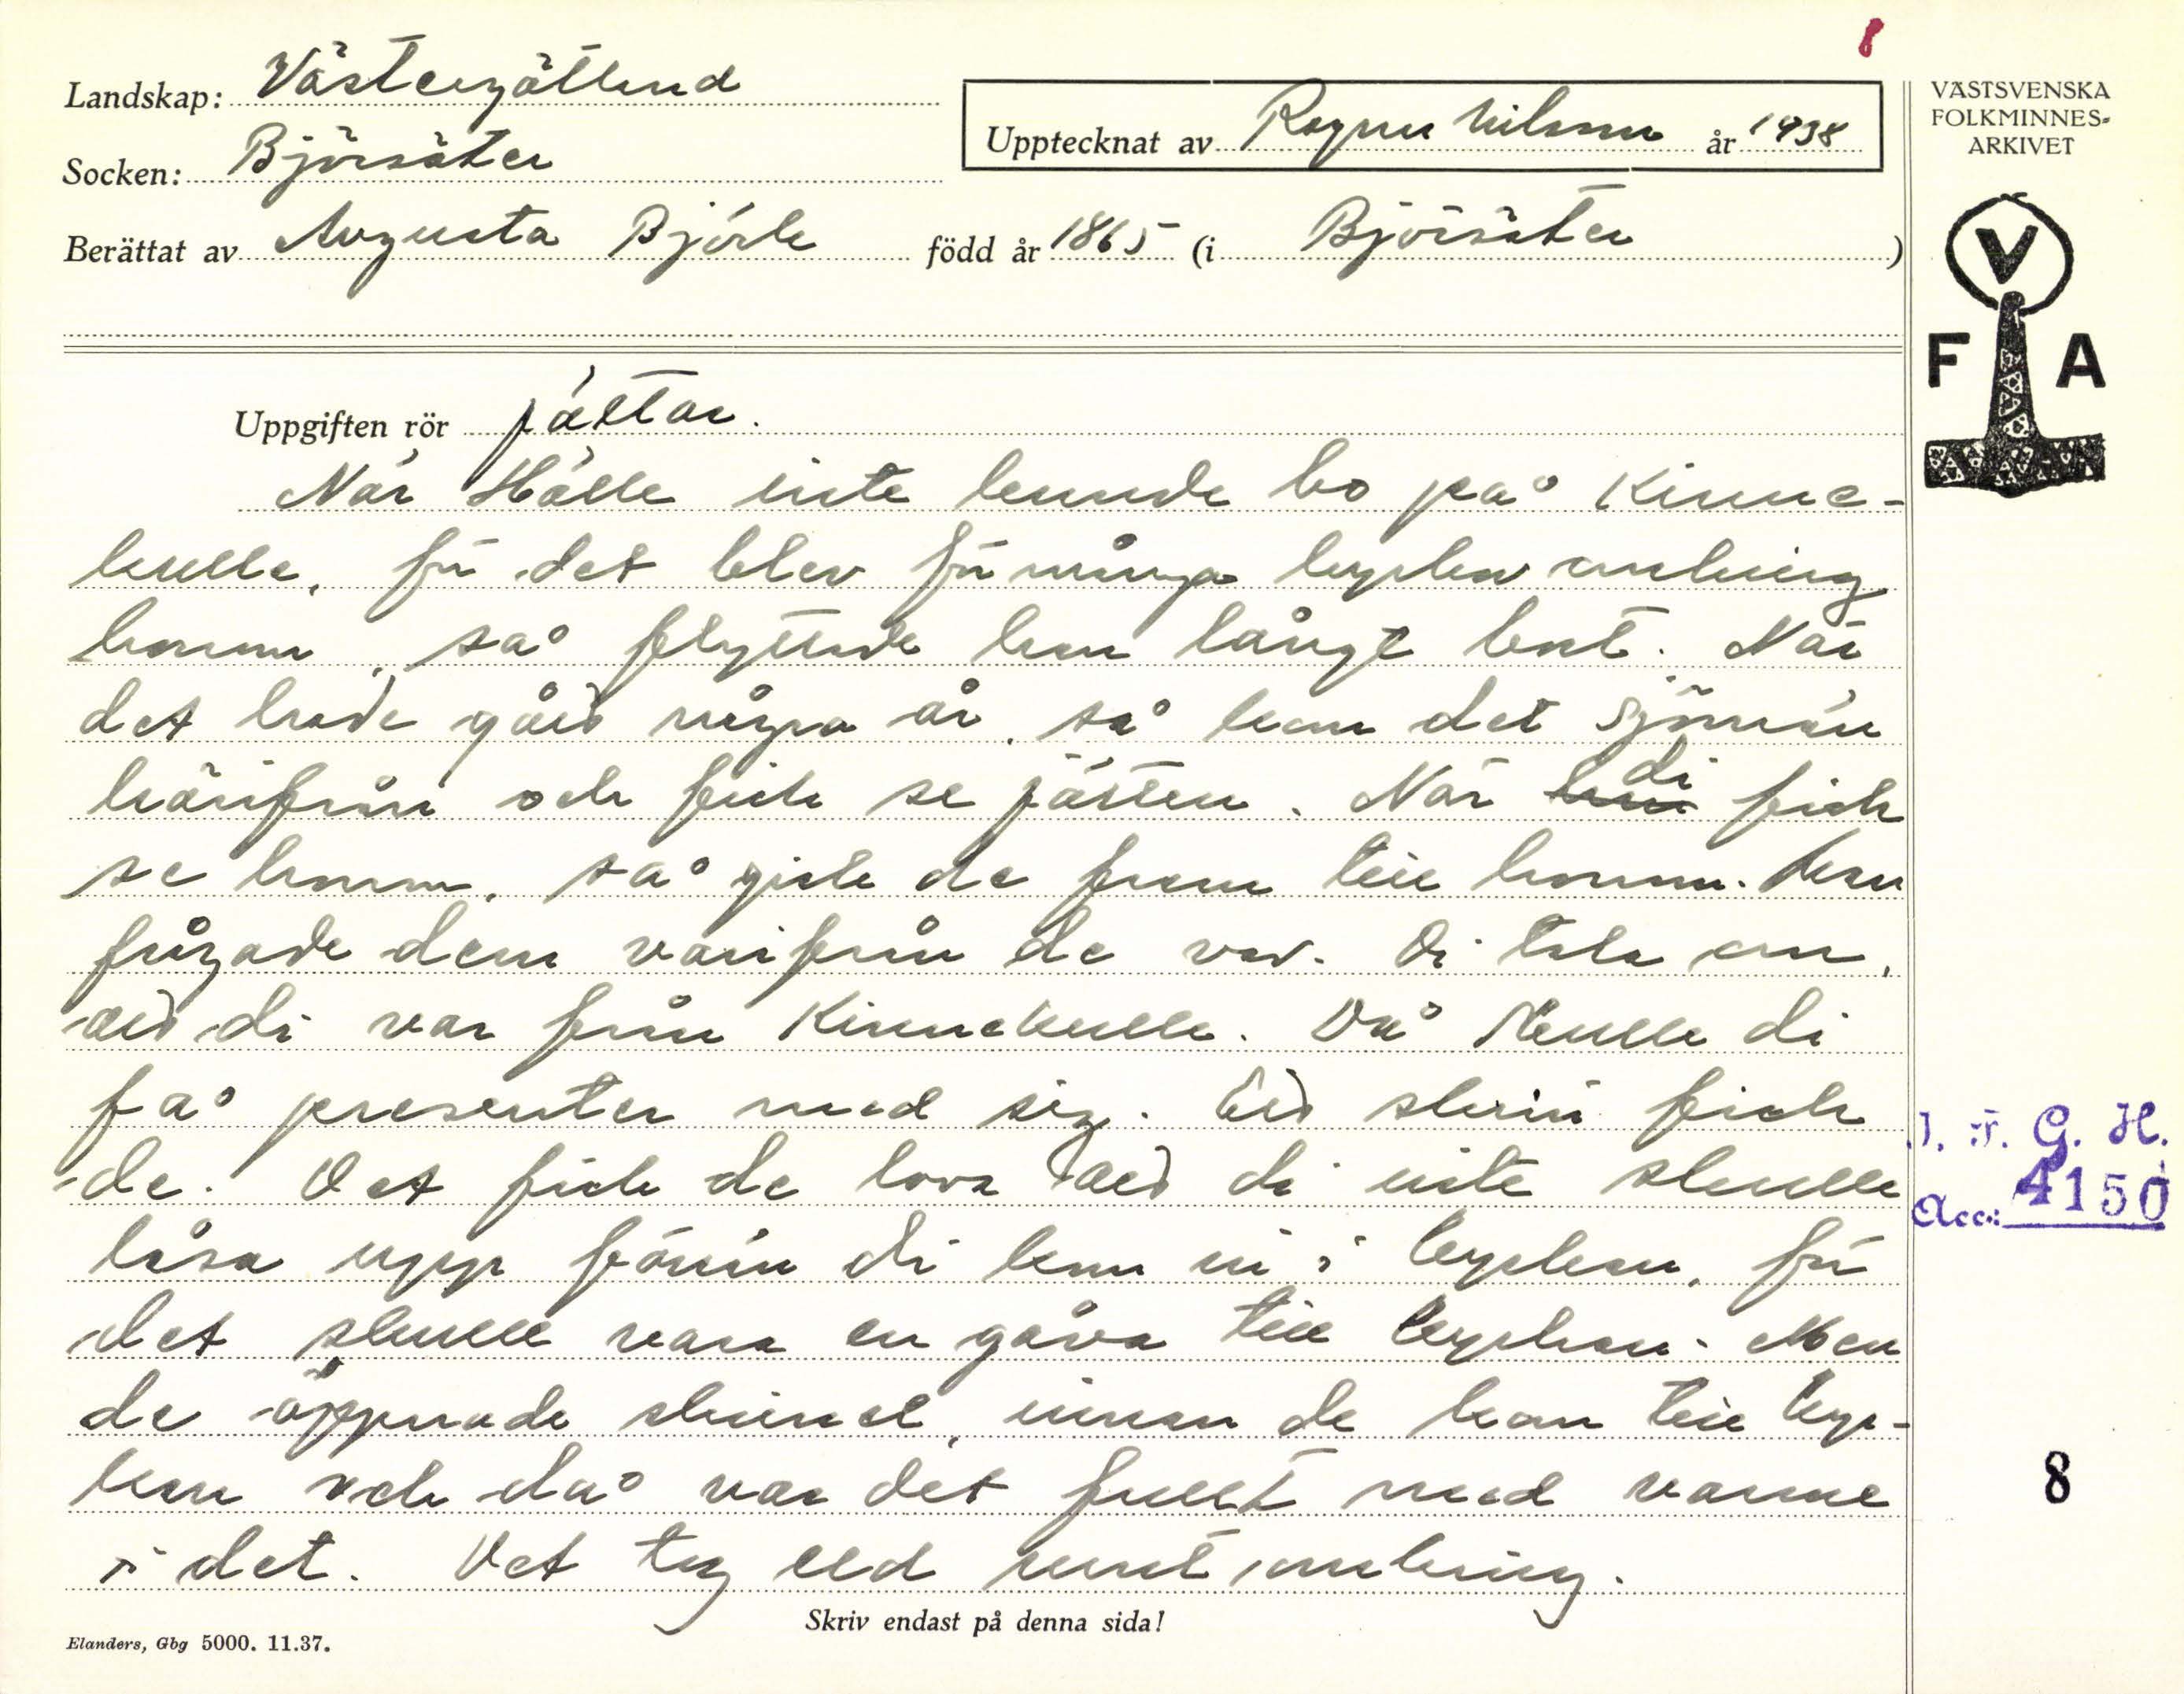 8
Landskap: Västergötland
Socken: Björsäter
Upptecknat av Ragnar Nilsson år 1938
VÄSTSVENSKA
FOLKMINNES-
ARKIVET
Berättat av Augusta Björk född år 1865 (i Björsäter)
V
F A
Uppgiften rör jättar.
När Hålle inte kunde bo på Kinne-
kulle, för det blev för många kyrkor omkring
honom, så flyttade han långt bort. När
det hade gått några år, så kom det sjömän
härifrån och fick se jätten. När han di fick
se honom, så gick de fram till honom. Han
frågade dem varifrån de var. Di tala om,
att di var från Kinnekulle. Då skulle di
få presenter med sig. Ett skrin fick
de. Det fick de lova att di inte skulle
låsa upp förrän di kom in i kyrkan, för
det skulle vara en gåva till kyrkan. Men
de öppnade skrinet, innan de kom till kyr-
kan och då var det fullt med varme
i det. Det tog eld runt omkring.
I. F. G. H.
Acc.: 4150
8
Skriv endast på denna sida!
Elanders, Gbg 5000. 11.37.